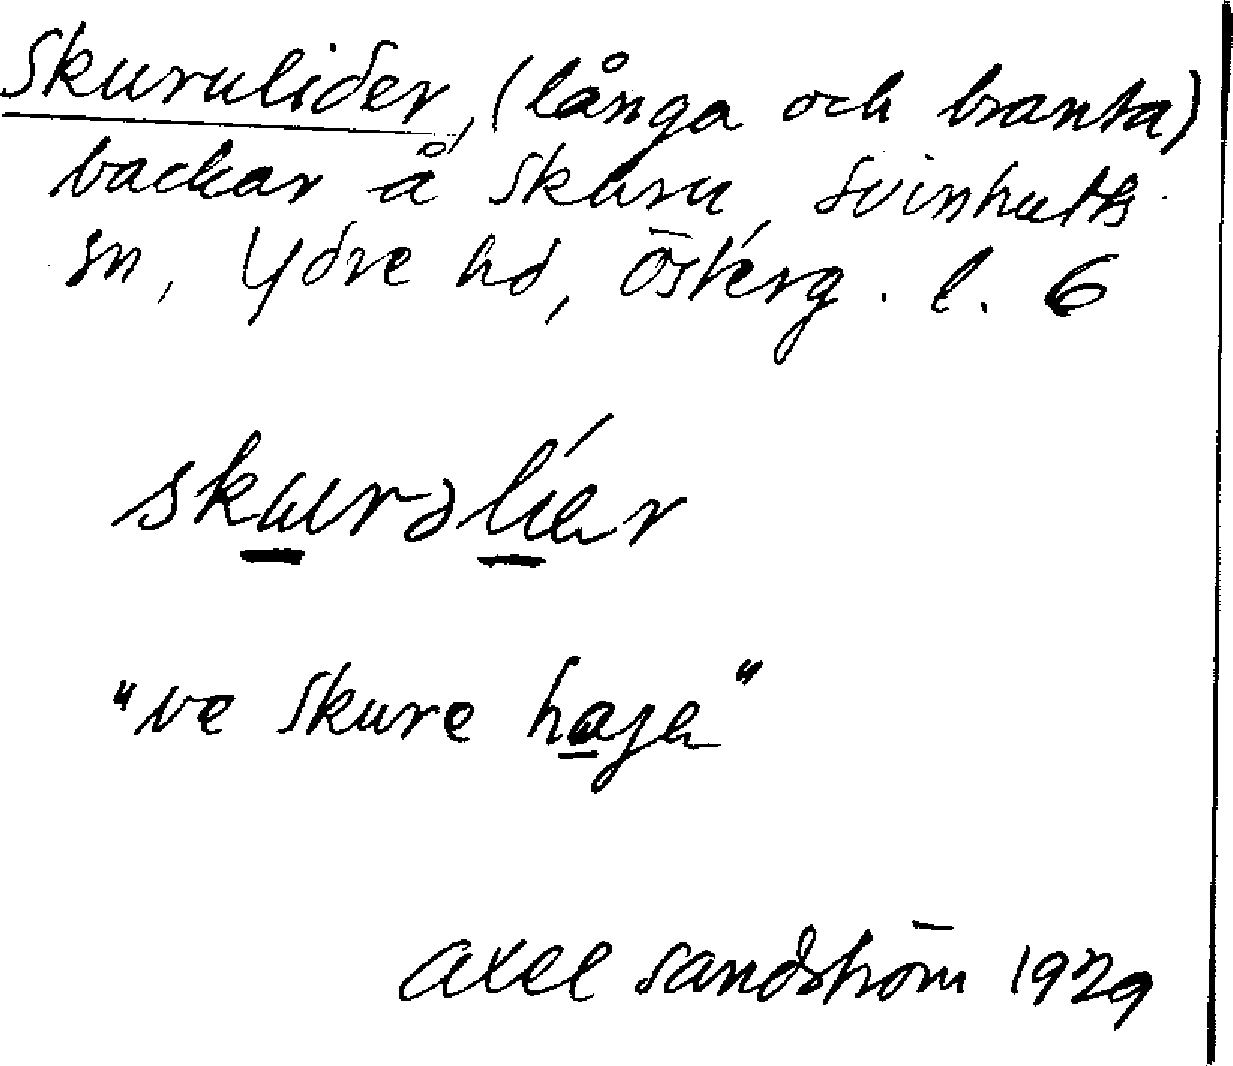 Skurulider, (långa och branta)
backar å Skuru, Svinhults
sn, Ydre hd, Österg. l. 6
skurəli´er
"ve Skure hagen"
Axel Sandström 1929